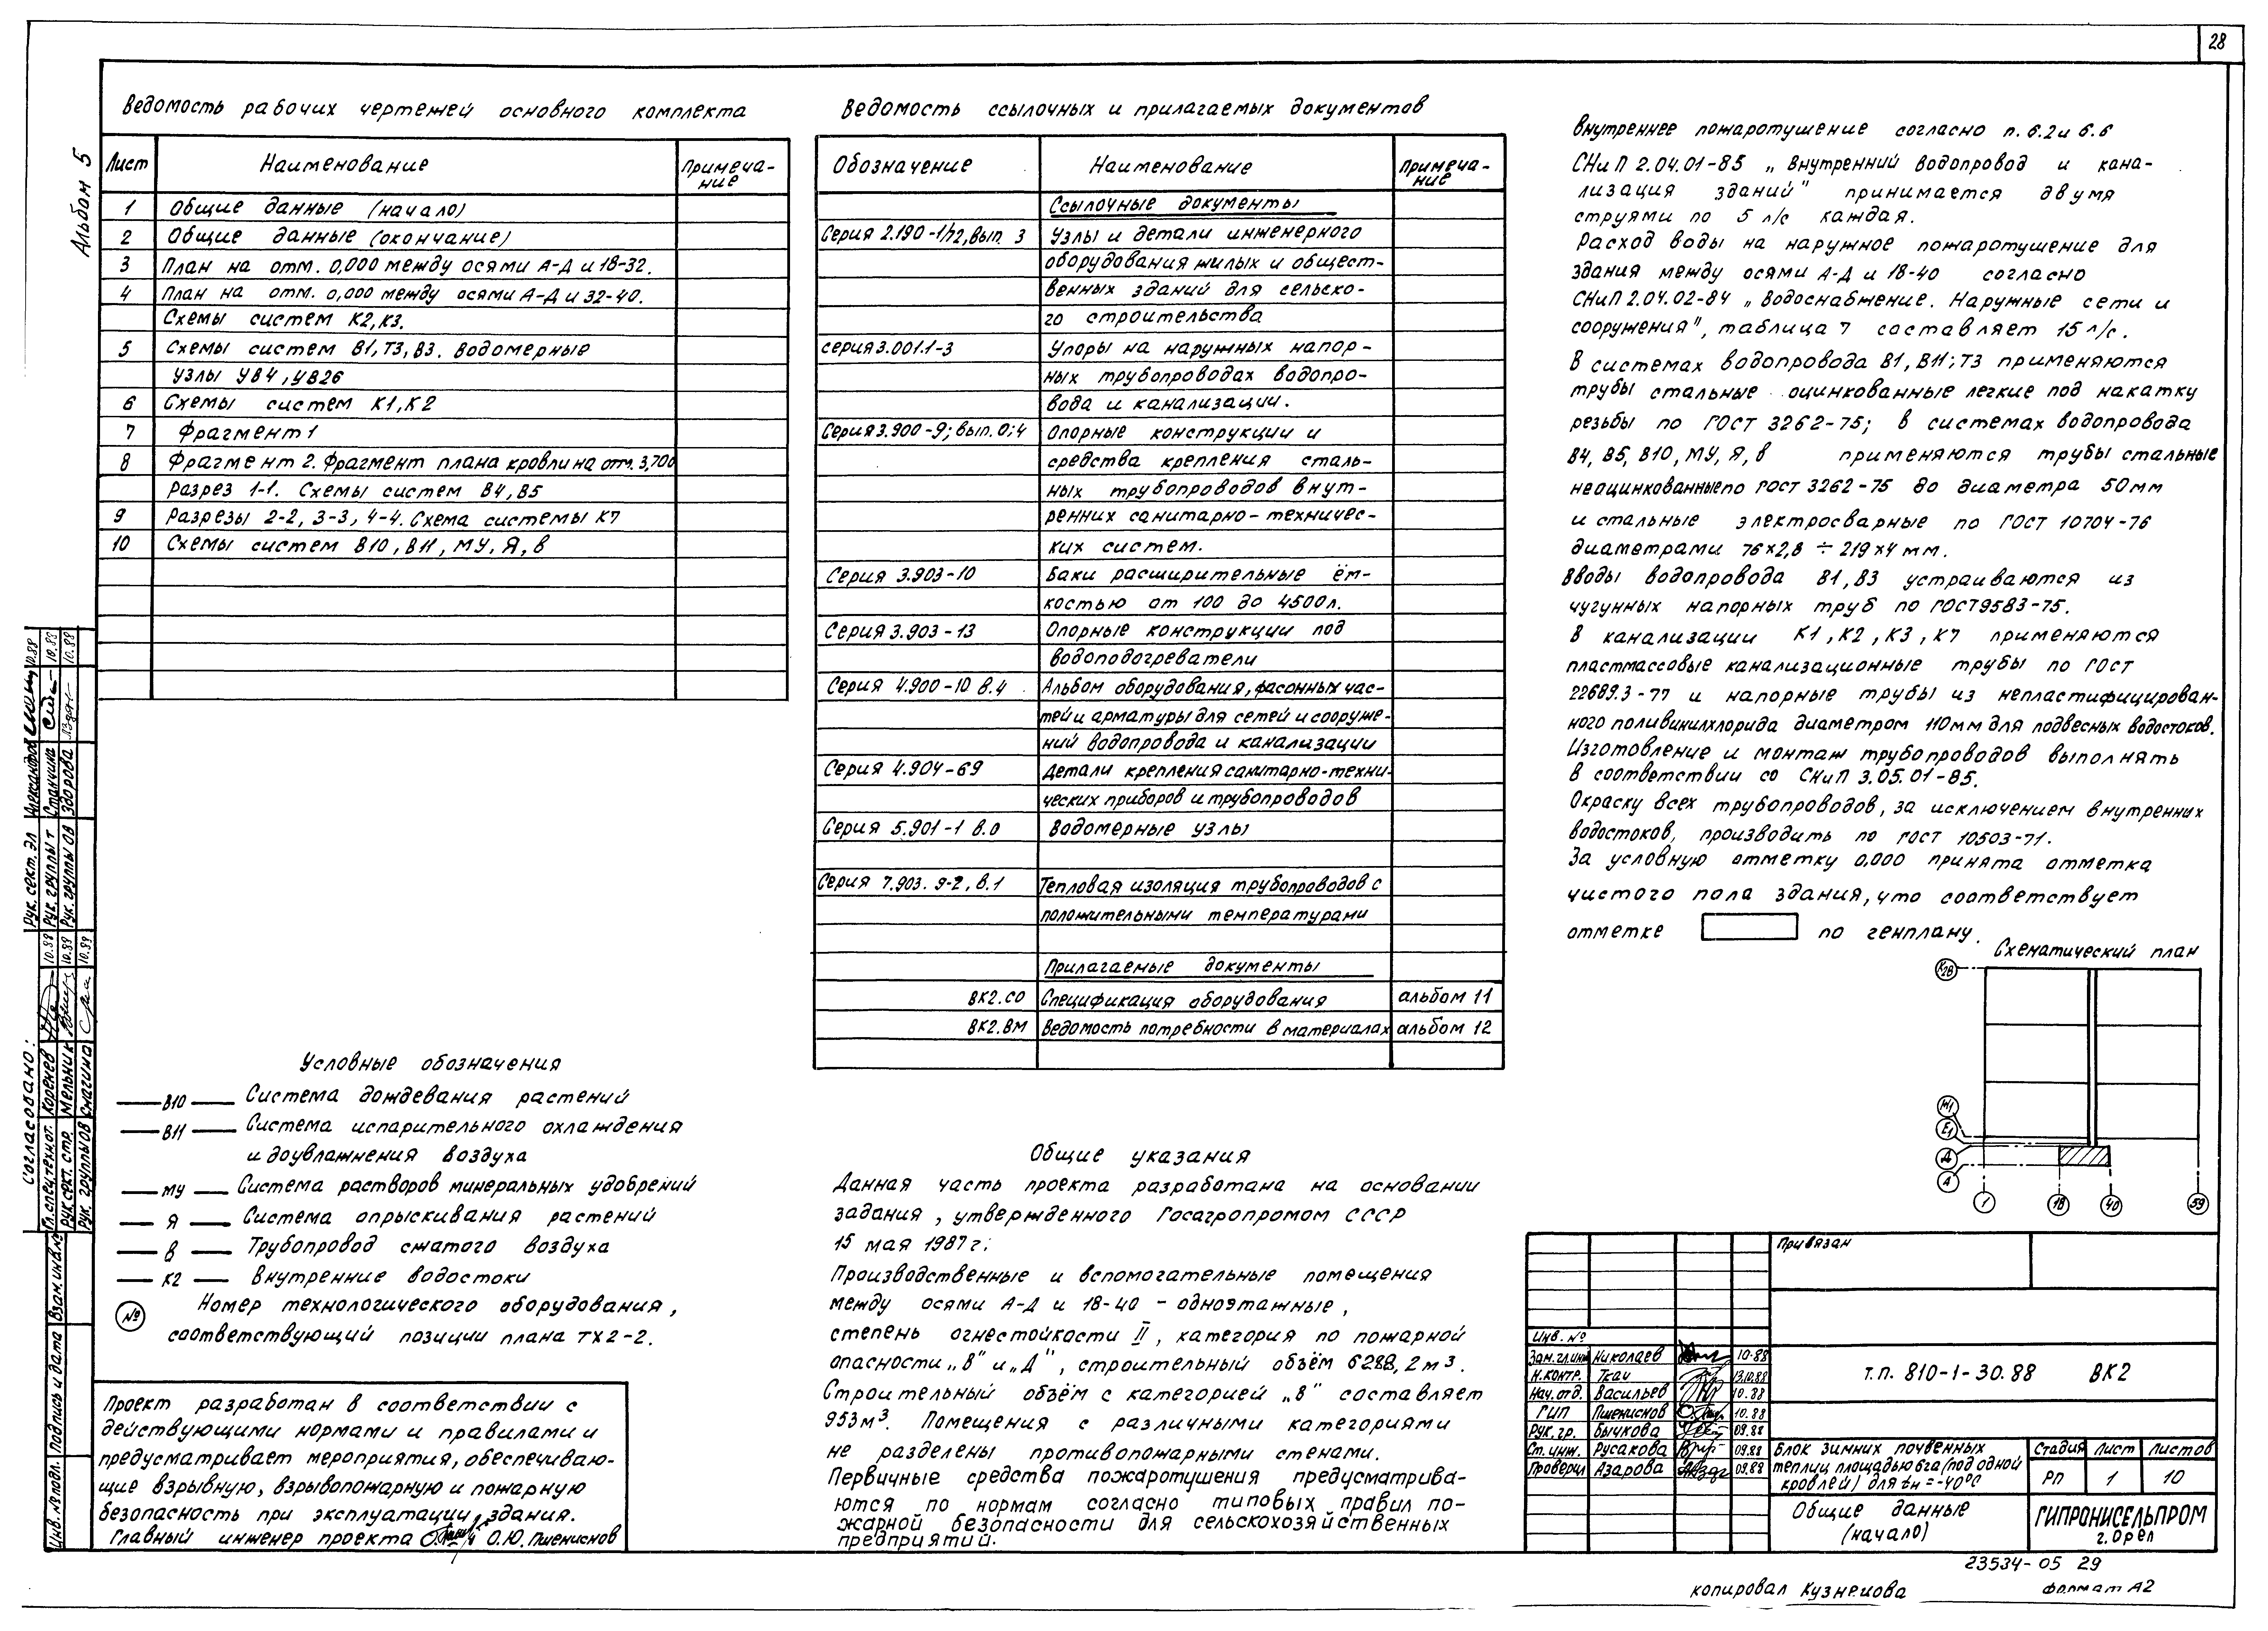 28
Альбом 5
Ведомость рабочих чертежей основного комплекта
Лист Наименование Примеча-ние
1 Общие данные (начало)
2 Общие данные (окончание)
3 План на отм. 0,000 между осями А-Д и 18-32.
4 План на отм. 0,000 между осями А-Д и 32-40.
Схемы систем К2, К3.
5 Схемы систем В1, Т3, В3. Водомерные
узлы УВ4, УВ26
6 Схемы систем К1, К2
7 Фрагмент 1
8 Фрагмент 2. Фрагмент плана кровли на отм. 3,700
Разрез 1-1. Схемы систем В4, В5
9 Разрезы 2-2, 3-3, 4-4. Схема системы К7
10 Схемы систем В10, В11, МУ, Я, в
Условные обозначения
В10 Система дождевания растений
В11 Система испарительного охлаждения
и доувлажнения воздуха
МУ Система растворов минеральных удобрений
Я Система опрыскивания растений
в Трубопровод сжатого воздуха
К2 Внутренние водостоки
№ Номер технологического оборудования,
соответствующий позиции плана ТХ2-2.
Проект разработан в соответствии с
действующими нормами и правилами и
предусматривает мероприятия, обеспечиваю-
щие взрывную, взрывопожарную и пожарную
безопасность при эксплуатации здания.
Главный инженер проекта О.Ю. Пшениснов
Ведомость ссылочных и прилагаемых документов
Обозначение Наименование Примеча-ние
Ссылочные документы
Серия 2.190-1/72, вып. 3 Узлы и детали инженерного
оборудования жилых и общест-
венных зданий для сельско-
го строительства
Серия 3.001.1-3 Упоры на наружных напор-
ных трубопроводах водопро-
вода и канализации.
Серия 3.900-9; вып. 0; 4 Опорные конструкции и
средства крепления сталь-
ных трубопроводов внут-
ренних санитарно-техничес-
ких систем.
Серия 3.903-10 Баки расширительные ём-
костью от 100 до 4500л.
Серия 3.903-13 Опорные конструкции под
водоподогреватели
Серия 4.900-10 в.4 Альбом оборудования, фасонных час-
тей и арматуры для сетей и сооруже-
ний водопровода и канализации
Серия 4.904-69 Детали крепления санитарно-техни-
ческих приборов и трубопроводов
Серия 5.901-1 в.0 Водомерные узлы
Серия 7.903. 9-2, в.1 Тепловая изоляция трубопроводов с
положительными температурами
Прилагаемые документы
ВК2.СО Спецификация оборудования альбом 11
ВК2.ВМ Ведомость потребности в материалах альбом 12
Общие указания
Данная часть проекта разработана на основании
задания, утвержденного Госагропромом СССР
15 мая 1987 г.
Производственные и вспомогательные помещения
между осями А-Д и 18-40 - одноэтажные,
степень огнестойкости II, категория по пожарной
опасности „В" и „Д", строительный объём 6288,2 м³.
Строительный объём с категорией „В" составляет
953м³. Помещения с различными категориями
не разделены противопожарными стенами.
Первичные средства пожаротушения предусматрива-
ются по нормам согласно типовых правил по-
жарной безопасности для сельскохозяйственных
предприятий.
Внутреннее пожаротушение согласно п. 6.2 и 6.6
СНиП 2.04.01-85 „Внутренний водопровод и кана-
лизация зданий" принимается двумя
струями по 5 л/с каждая.
Расход воды на наружное пожаротушение для
здания между осями А-Д и 18-40 согласно
СНиП 2.04.02-84 „Водоснабжение. Наружные сети и
сооружения", таблица 7 составляет 15 л/с.
В системах водопровода В1, В11; Т3 применяются
трубы стальные оцинкованные легкие под накатку
резьбы по ГОСТ 3262-75; в системах водопровода
В4, В5, В10, МУ, Я, в применяются трубы стальные
неоцинкованные по ГОСТ 3262-75 до диаметра 50мм
и стальные электросварные по ГОСТ 10704-76
диаметрами 76×2,8 ÷ 219×4 мм.
Вводы водопровода В1, В3 устраиваются из
чугунных напорных труб по ГОСТ 9583-75.
В канализации К1, К2, К3, К7 применяются
пластмассовые канализационные трубы по ГОСТ
22689.3-77 и напорные трубы из непластифицирован-
ного поливинилхлорида диаметром 110мм для подвесных водостоков.
Изготовление и монтаж трубопроводов выполнять
в соответствии со СНиП 3.05.01-85.
Окраску всех трубопроводов, за исключением внутренних
водостоков, производить по ГОСТ 10503-71.
За условную отметку 0,000 принята отметка
чистого пола здания, что соответствует
отметке по генплану.
Схематический план
К2В
И1
Е1
Д
А
1 18 40 59
Привязан
Инв. №
Зам.гл.инж Николаев 10.88
Н.контр. Ткач 13.10.88
Нач.отд. Васильев 10.88
ГИП Пшениснов 10.88
Рук.гр. Бычкова 09.88
Ст.инж. Русакова 09.88
Проверил Азарова 09.88
т.п. 810-1-30.88 ВК2
Блок зимних почвенных
теплиц площадью 6га (под одной
кровлей) для tн=-40°С
Стадия Лист Листов
РП 1 10
Общие данные
(начало)
ГИПРОНИСЕЛЬПРОМ
г. Орел
23534-05 29
Копировал Кузнецова
Формат А2
Согласовано:
Гл.спец.технот. Коренев 10.88
Рук.сект. стр. Мельник 10.88
Рук. группы ОВ Смагина 10.89
Рук. сект. ЭЛ Александров 10.88
Рук. группы Т Станчина 10.88
Рук. группы ОВ Здорова 10.88
Инв.№ подл. Подпись и дата Взам.инв.№